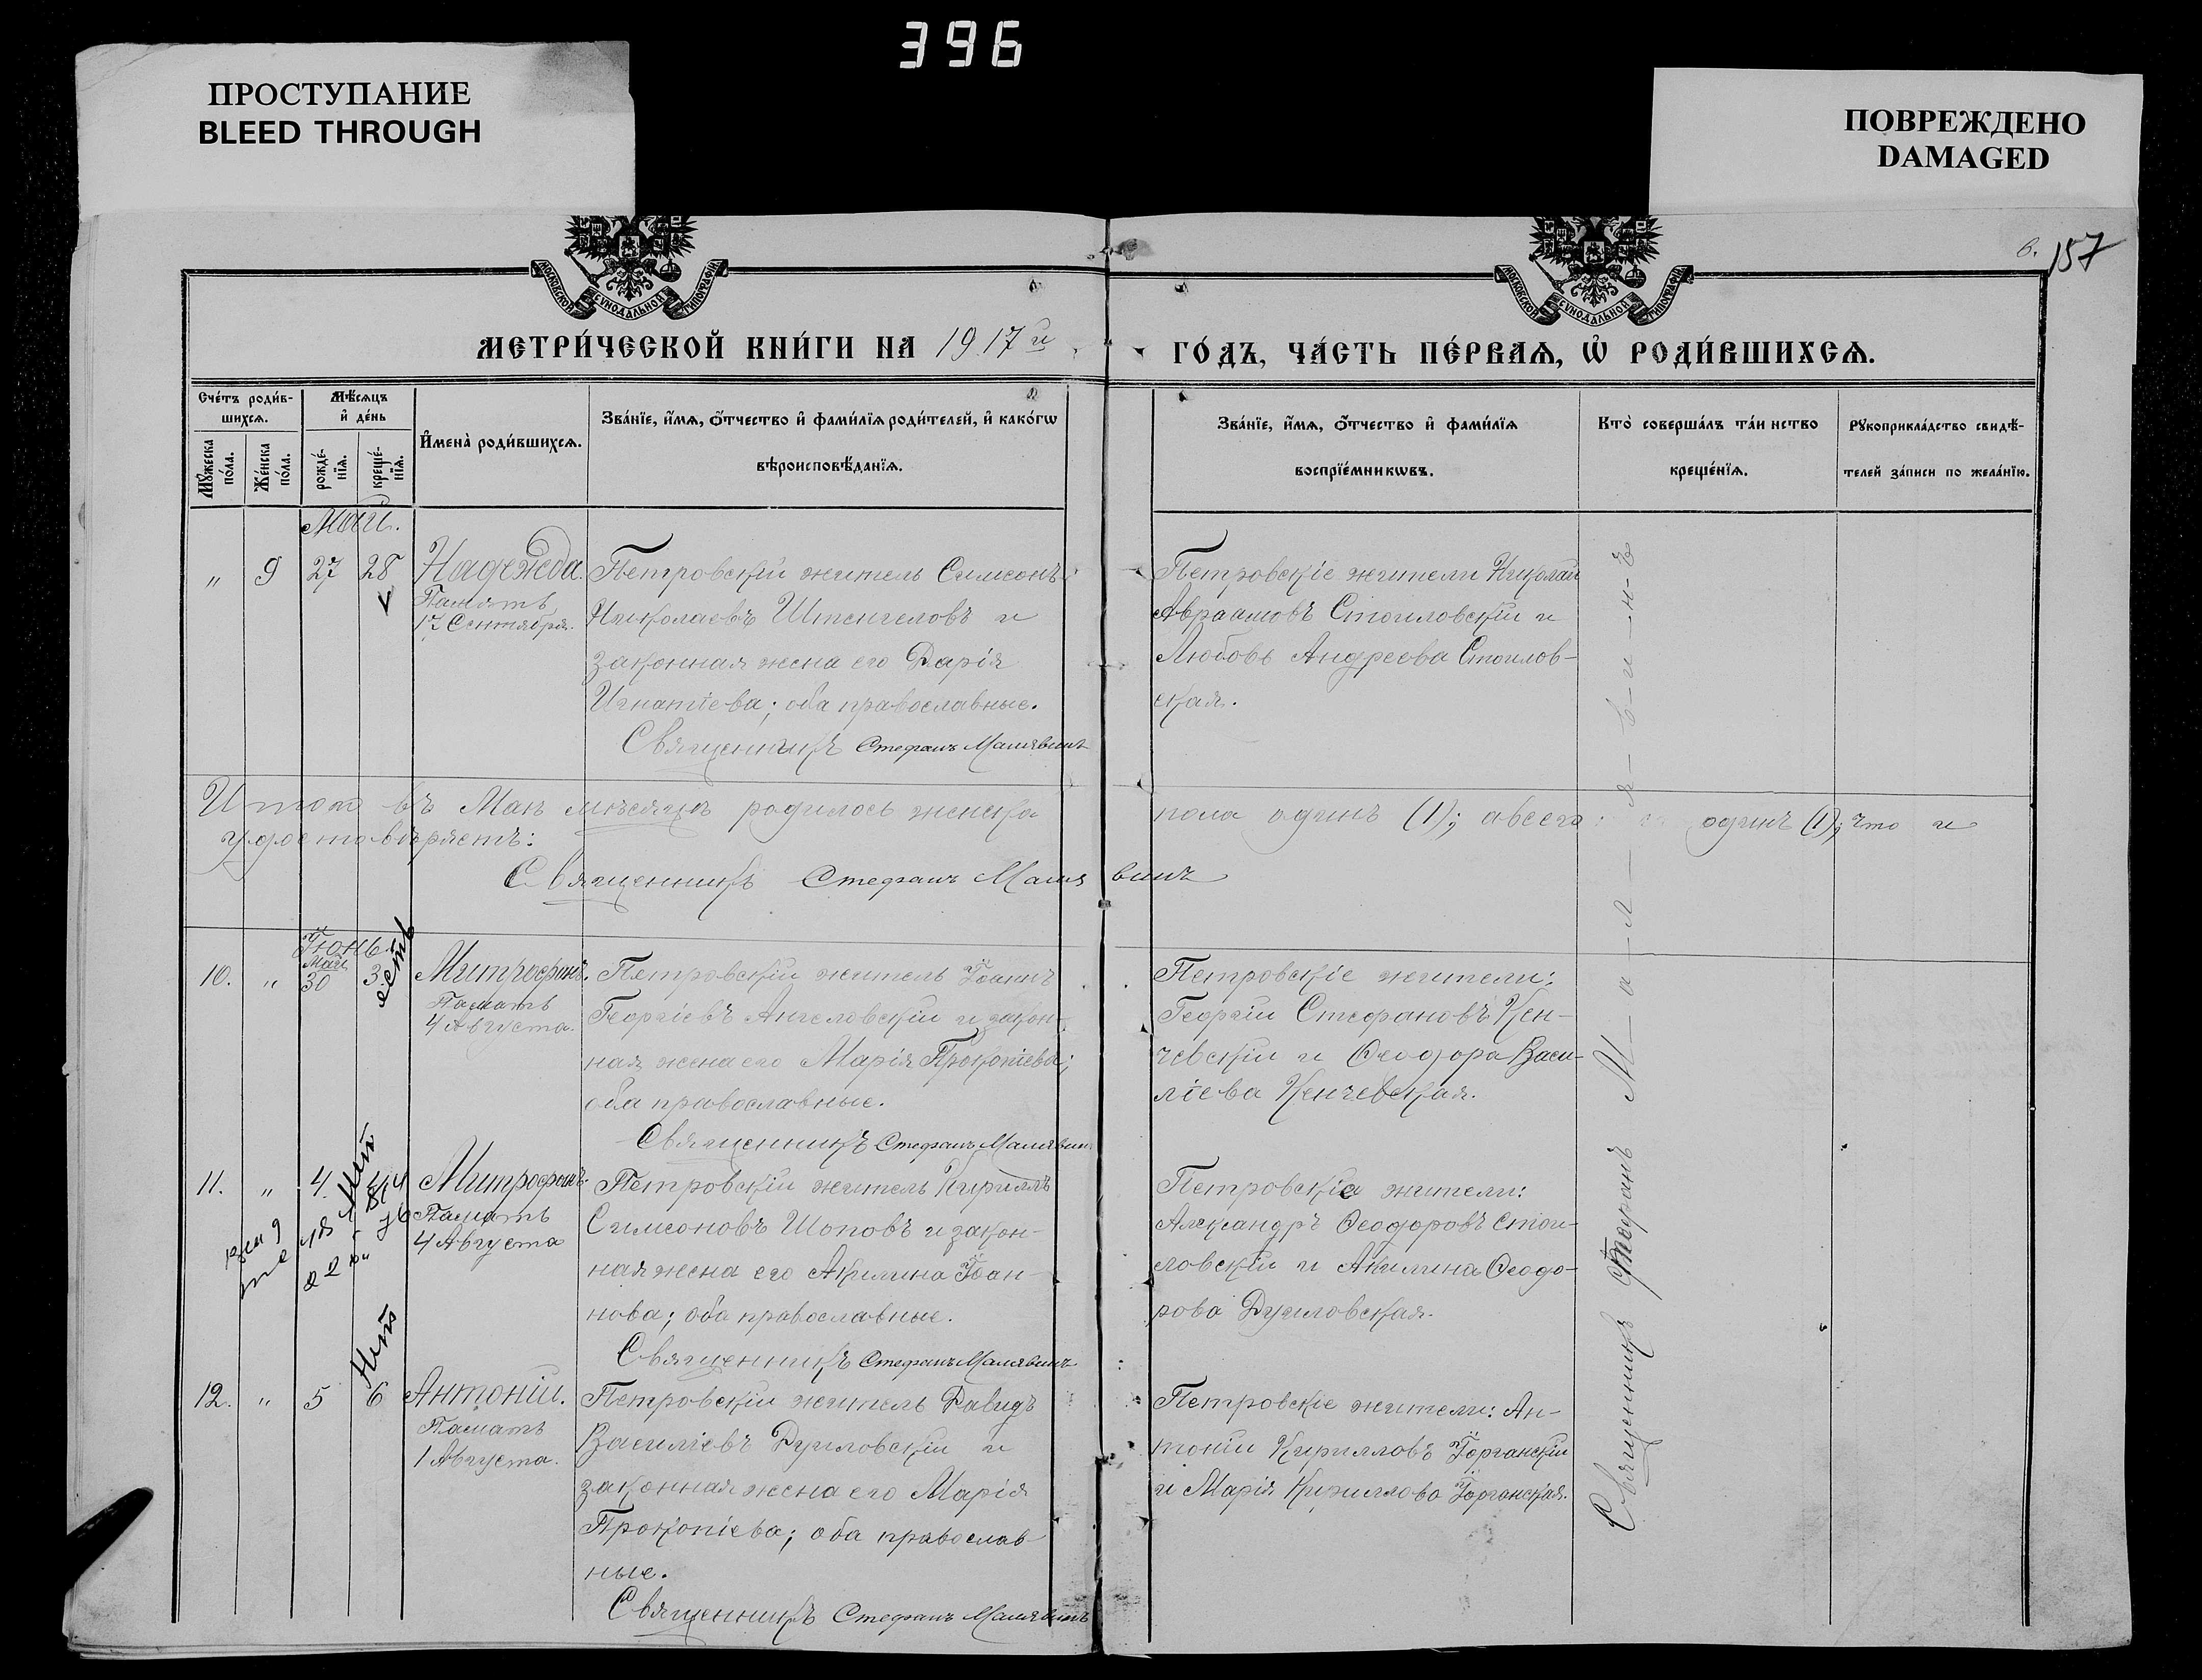 396
ПРОСТУПАНИЕ
BLEED THROUGH
ПОВРЕЖДЕНО
DAMAGED
в. 157
МОСКОВСКОЙ СѴНОДАЛЬНОЙ ТИПОГРАФІИ
МОСКОВСКОЙ СѴНОДАЛЬНОЙ ТИПОГРАФІИ
МЕТРИ́ЧЕСКОЙ КНИ́ГИ НА 1917й
ГО́ДЪ, ЧА́СТЬ ПЕ́РВАѦ, Ѡ҆ РОДИ́ВШИХСѦ.
Счéтъ роди́в-
шихсѧ.
Мꙋ́жеска по́ла.
Же́нска по́ла.
Мѣ́сѧцъ
и҆ де́нь
рожде́-нїѧ.
креще́-нїѧ.
И҆мена̀ роди́вшихсѧ.
Зва́нїе, и҆́мѧ, ѻ҆́тчество и҆ фами́лїѧ роди́телей, и҆ како́гѡ
вѣроисповѣ́данїѧ.
Зва́нїе, и҆́мѧ, ѻ҆́тчество и҆ фами́лїѧ
воспрїе́мникѡвъ.
Кто̀ соверша́лъ та́инство
креще́нїѧ.
Рꙋкоприкла́дство свидѣ́-
телей за́писи по жела́нїю.
Май.
„ 9 27 28 Надежда.
Память
17 Сентября.
Петровскій житель Симеонъ
Николаевъ Штенгеловъ и
законная жена его Дарія
Игнатіева; оба православные.
Священникъ Стефанъ Малявинъ
Петровскіе жители Николай
Авраамовъ Стоиловскій и
Любовь Андреева Стоилов-
ская.
Итого въ Маѣ мѣсяцѣ родилось женска пола одинъ (1); а всего: одинъ (1); что и
удостовѣряетъ:
Священникъ Стефанъ Малявинъ
Іюнь
есть
10. „ Май 30 3 Митрофанъ.
Память
4 Августа.
Петровскій житель Іоаннъ
Георгіевъ Ангеловскій и закон-
ная жена его Марія Прокопіева;
оба православные.
Священникъ Стефанъ Малявинъ
Петровскіе жители:
Георгій Стефановъ Кен-
чевскій и Ѳеодора Васи-
ліева Кенчевская.
11. „ 4. Митрофанъ.
Память
4 Августа
Петровскій житель Кириллъ
Симеоновъ Шоповъ и закон-
ная жена его Акилина Іоан-
нова; оба православные.
Священникъ Стефанъ Малявинъ
Петровскіе жители:
Александръ Ѳеодоровъ Стои-
ловскій и Акилина Ѳеодо-
рова Дуиловская.
12. „ 5 6 Антоній.
Память
1 Августа.
Петровскій житель Давидъ
Василіевъ Дуиловскій и
законная жена его Марія
Прокопіева; оба православ
ные.
Священникъ Стефанъ Малявинъ
Петровскіе жители: Ан-
тоній Кирилловъ Іорганскій
и Марія Кириллова Іорганская.
Священникъ Стефанъ М-а-л-я-в-и-н-ъ